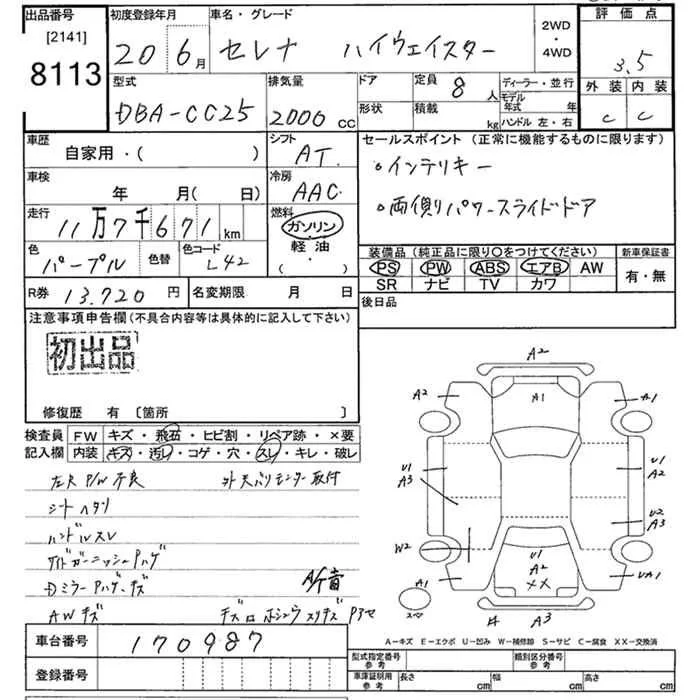 出品番号
[2141]
8113
初度登録年月
20年6月
車名・グレード
セレナ ハイウェイスター
2WD
・
4WD
評価点
3.5
外装 内装
C C
型式
DBA-CC25
排気量
2000 cc
ドア
形状
定員 8 人
積載 kg
ディーラー・並行
モデル年式 年
ハンドル 左・右
車歴
自家用・( )
シフト
AT
セールスポイント (正常に機能するものに限ります)
。インテリキー
。両側パワースライドドア
車検
年 月( 日)
冷房
AAC
走行
11万7千671km
燃料
ガソリン
軽油
( ・ )
色
パープル
色替
色コード
L42
装備品 (純正品に限り〇をつけてください)
PS PW ABS エアB AW
SR ナビ TV カワ
新車保証書
有・無
R券 13.720円
名変期限 月 日
後日品
注意事項申告欄 (不具合内容等は具体的に記入して下さい)
初出品
修復歴 有 〔箇所 〕
検査員
記入欄
FW キズ・飛石・ヒビ割・リペア跡・×要
内装 キズ・汚レ・コゲ・穴・スレ・キレ・破レ
左R P/W 不良
シートヘタリ
ハンドルスレ
サイドガーニッシュハゲ
Dミラーハゲ・キズ
AWキズ
A2
A1
A2
A1
U1
A3
U1
A2
U2
A3
W2
A1
U1
A2
XX
UA1
スペ
A3
A-キズ E-エクボ U-凹み W-補修跡 S-サビ C-腐食 XX-交換済
車台番号 170987
登録番号
型式指定番号
参考
類別区分番号
参考
車庫証明用
参考
長さ cm 幅 cm 高さ cm